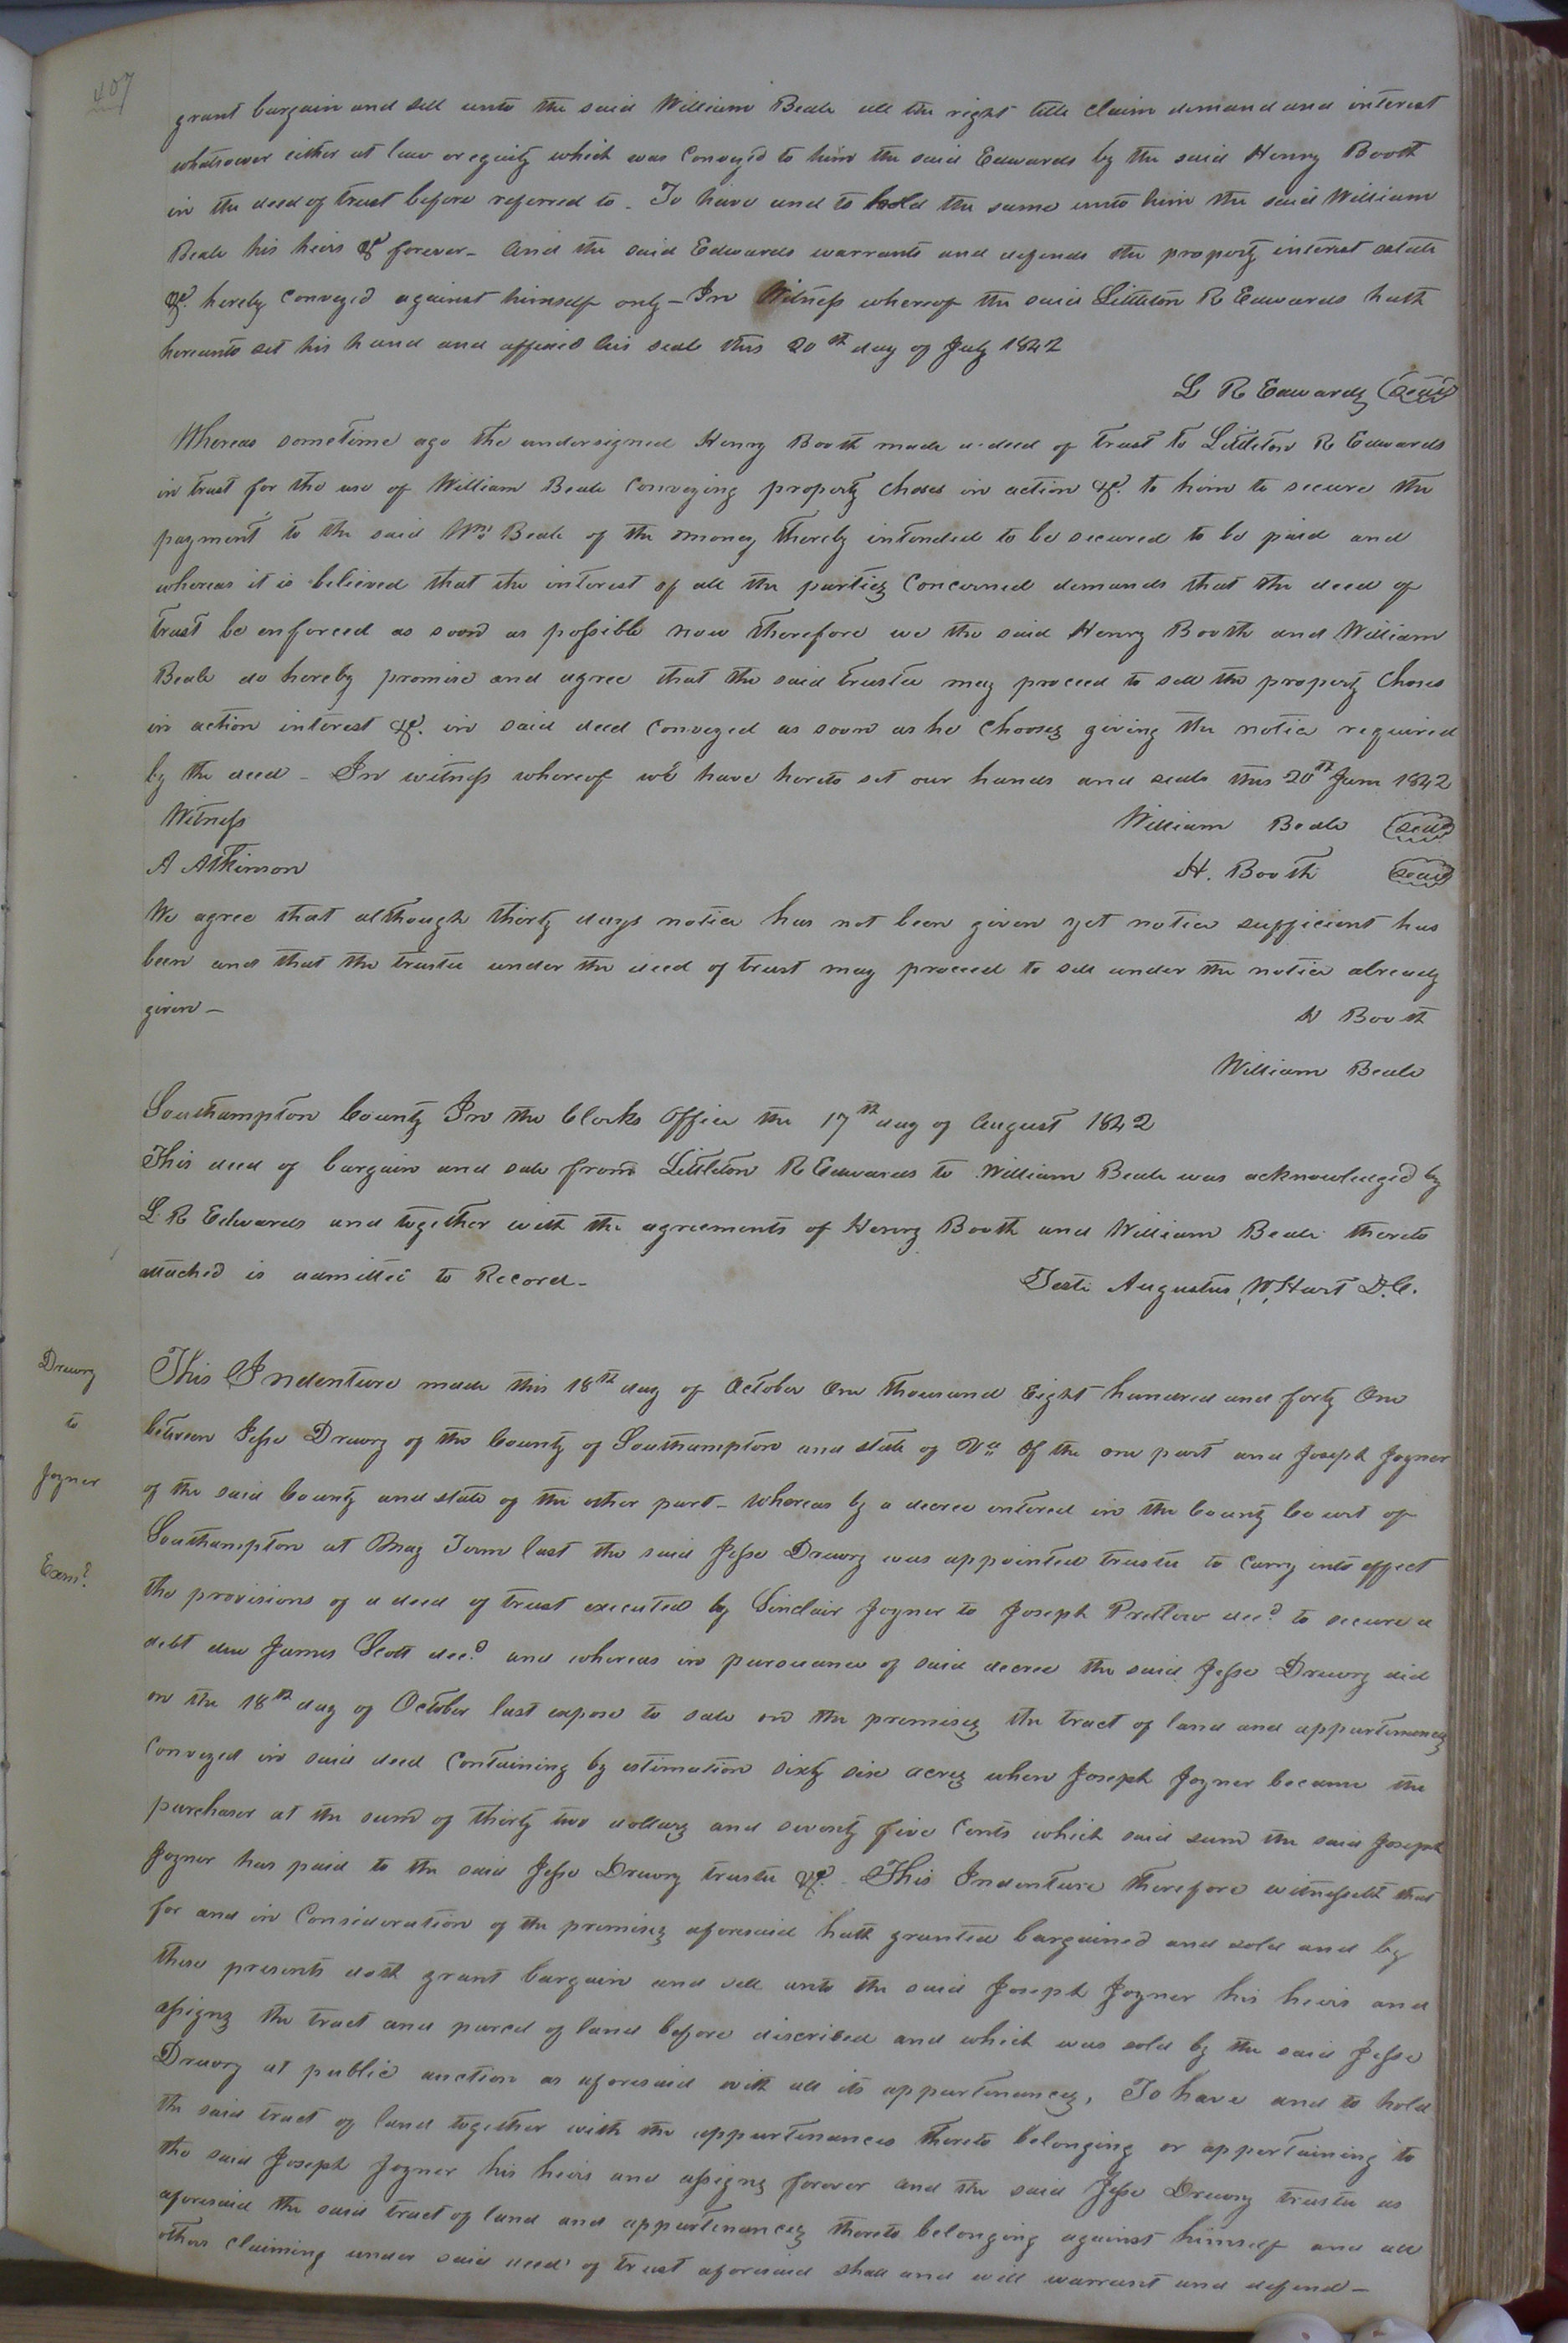 407
grant bargain and sell unto the said William Beale all the right title claim demand and interest
whatsoever either at law or equity which was conveyed to him the said Edwards by the said Henry Booth
in the deed of trust before referred to. To have and to hold the same unto him the said William
Beale his heirs &c forever - And the said Edwards warrants and defends the property interest estate
&c. hereby conveyed against himself only - In Witness whereof the said Littleton R Edwards hath
hereunto set his hand and affixed his seal this 20th day of July 1842
L R Edwards (Seal)
Whereas sometime ago the undersigned Henry Booth made a deed of trust to Littleton R Edwards
in trust for the use of William Beale conveying property choses in action &c. to him to secure the
payment to the said Wm. Beale of the money thereby intended to be secured to be paid and
whereas it is believed that the interest of all the parties concerned demands that the deed of
trust be enforced as soon as possible now therefore we the said Henry Booth and William
Beale do hereby promise and agree that the said trustee may proceed to sell the property choses
in action interest &c. in said deed conveyed as soon as he chooses giving the notice required
by the deed - In witness whereof we have hereto set our hands and seals this 20th June 1842
Witness William Beale (seal)
A Atkinson H. Booth (seal)
We agree that although thirty days notice has not been given yet notice sufficient has
been and that the trustee under the deed of trust may proceed to sell under the notice already
given - H Booth
William Beale
Southampton County In the Clerks Office the 17th day of August 1842
This deed of bargain and sale from Littleton R Edwards to William Beale was acknowledged by
L R Edwards and together with the agreements of Henry Booth and William Beale thereto
attached is admitted to Record - Teste Augustus W. Hart D.C.
Drewry
to
Joyner
Exmd.
This Indenture made this 18th day of October One thousand Eight hundred and forty One
between Jesse Drewry of the County of Southampton and state of Va Of the one part and Joseph Joyner
of the said County and state of the other part - Whereas by a decree entered in the County Court of
Southampton at May Term last the said Jesse Drewry was appointed trustee to carry into effect
the provisions of a deed of trust executed by Sinclair Joyner to Joseph Pretlow decd. to secure a
debt due James Scott decd. and whereas in pursuance of said decree the said Jesse Drewry did
on the 18th day of October last expose to sale on the premises the tract of land and appurtenances
conveyed in said deed containing by estimation sixty six acres when Joseph Joyner became the
purchaser at the sum of thirty two dollars and seventy five cents which said sum the said Joseph
Joyner has paid to the said Jesse Drewry trustee &c. This Indenture therefore witnesseth that
for and in Consideration of the premises aforesaid hath granted bargained and sold and by
these presents doth grant bargain and sell unto the said Joseph Joyner his heirs and
assigns the tract and parcel of land before discribed and which was sold by the said Jesse
Drewry at public auction as aforesaid with all its appurtenances, To have and to hold
the said tract of land together with the appurtenances thereto belonging or appertaining to
the said Joseph Joyner his heirs and assigns forever and the said Jesse Drewry trustee as
aforesaid the said tract of land and appurtenances thereto belonging against himself and all
others claiming under said deed of trust aforesaid shall and will warrant and defend -